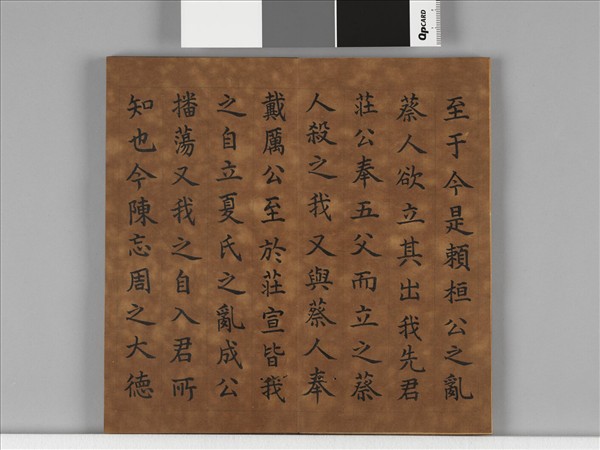 至于今是賴桓公之亂
蔡人欲立其出我先君
莊公奉五父而立之蔡
人殺之我又與蔡人奉
戴厲公至於莊宣皆我
之自立夏氏之亂成公
播蕩又我之自入君所
知也今陳忘周之大德
QPCARD